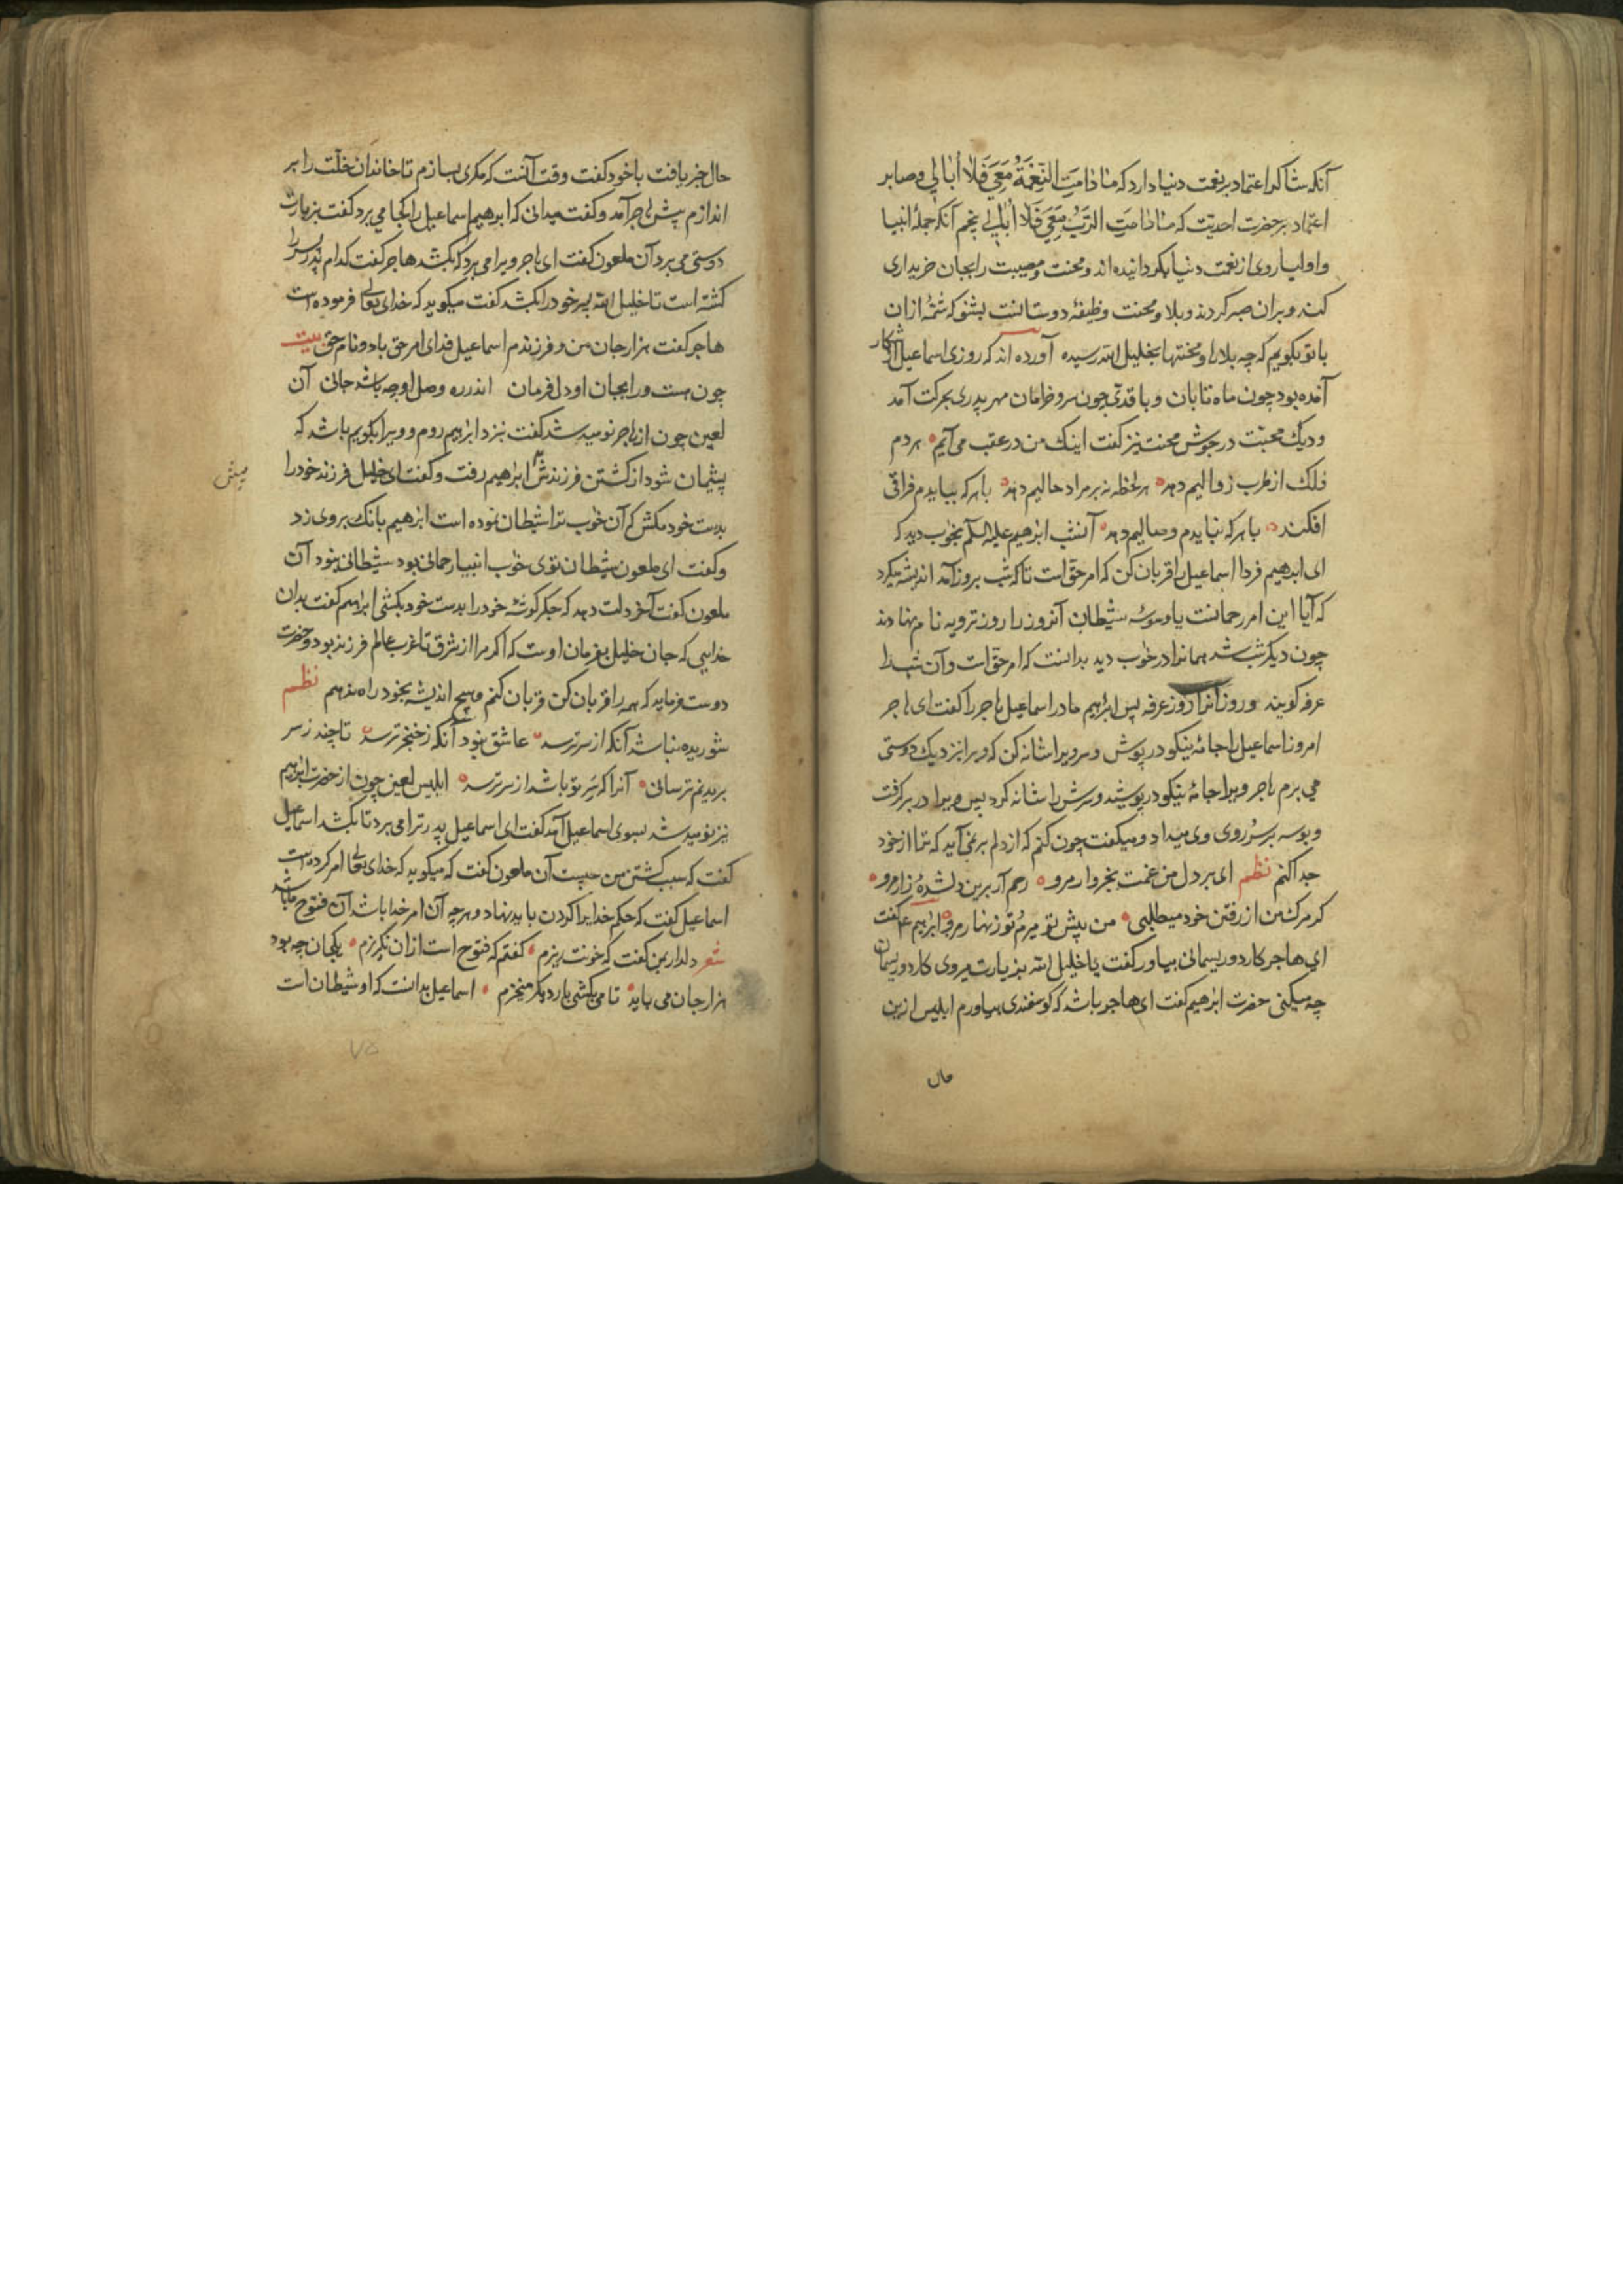 آنکه شاکر اعتماد بر نعمت دنیا دارد که مَا دَامَتِ النِّعْمَةُ مَعِیَ فَلَا اُبَالِی و صابر
اعتماد بر حضرت احدیت که مَا دَامَتِ الرَّبُّ مَعِیَ فَلَا اُبَالِی پنجم آنکه جملهٔ انبیا
و اولیا روی از نعمت دنیا بگردانیده اند و محنت و مصیبت را بجان خریداری
کنند و بران صبر کردند و بلا و محنت وظیفهٔ دوستانست بشنو که شمهٔ ازان
با تو بگویم که چه بلاها و محنتها بخلیل الله رسیده آورده اند که روزی اسماعیل از شکار
آمده بود چون ماه تابان و با قدی چون سرو خرامان مهر پدری بحرکت آمد
و دیک محبت در جوش محنت نیز گفت اینک من در عقب می آیم هر دم
فلک از طرب زوالیم دهد هر لحظه نه بر مراد حالیم دهد با هر که بیایدم فراقی
افکند با هر که نبایدم وصالیم دهد آنشب ابرهیم علیه السلم بخواب دید که
ای ابرهیم فردا اسماعیل را قربان کن که امر حق است تا که شب بروز آمد اندیشه میکرد
که آیا این امر رحمانست یا وسوسهٔ شیطان آنروز را روز ترویه نام نهادند
چون دیگر شب شد همانرا در خواب دید بدانست که امر حق است و آن شب را
عرفه گویند و روز انرا روز عرفه پس ابرهیم مادر اسماعیل هاجر را گفت ای هاجر
امروز اسماعیل را جامهٔ نیکو در پوش و سر ویرا شانه کن که ویرا نزدیک دوستی
می برم هاجر ویرا جامهٔ نیکو در پوشید و سرش را شانه کرد پس ویرا در بر گرفت
و بوسه بر سر و روی وی میداد و میگفت چون کنم که از دلم بر نمی آید که ترا از خود
جدا کنم نظم ای بر دل من غمت بخروار مرو رحم آر برین دلشدهٔ زار مرو
گر مرک من از رفتن خود میطلبی من پیش تو میرم تو زنهار مرو ابرهیم ع گفت
ای هاجر کارد و ریسمانی بیاور گفت یا خلیل الله بزیارت میروی کارد و ریسمان
چه میکنی حضرت ابرهیم گفت ای هاجر باشد که گوسفندی بیاورم ابلیس ازین
حال خبر یافت با خود گفت وقت آنست که مکری بسازم تا خاندان خلّت را بر
اندازم پیش هاجر آمد و گفت میدانی که ابرهیم اسماعیل را کجا می برد گفت بزیارت
دوستی می برد آن ملعون گفت ای هاجر ویرا می برد که بکشد هاجر گفت کدام پدر پسر را
کشته است تا خلیل الله پسر خود را بکشد گفت میگوید که خدای تعالی فرموده است
هاجر گفت هزار جان من و فرزندم اسماعیل فدای امر حق باد و نام حق بیت
چون هست ورا بجان او دل فرمان اندر ره وصل او چه باشد جانی آن
لعین چون از هاجر نومید شد گفت نزد ابراهیم روم و ویرا بگویم باشد که
پشیمان شود از کشتن فرزندش ابرهیم رفت و گفت ای خلیل فرزند خود را
پیش
بدست خود مکش که آن خواب ترا شیطان نموده است ابرهیم بانک بروی زد
و گفت ای ملعون شیطان توی خواب انبیا رحمانی بود شیطانی نبود آن
ملعون گفت آخر دلت دهد که جگرگوشهٔ خود را بدست خود بکشی ابراهیم گفت بدان
خدایی که جان خلیل بفرمان اوست که اگر مرا از شرق تا غرب عالم فرزند بود و حضرت
دوست فرماید که همه را قربان کن قربان کنم و هیچ اندیشه بخود راه ندهم نظم
شوریده نباشد آنکه از سر ترسد عاشق نبود آنکه ز خنجر ترسد تا چند ز سر
بریدنم ترسانی آنرا که سر تو باشد از سر ترسد ابلیس لعین چون از حضرت ابرهیم
نیز نومید شد بسوی اسماعیل آمد گفت ای اسماعیل پدر ترا می برد تا بکشد اسماعیل
گفت که سبب کشتن من چیست آن ملعون گفت که میگوید که خدای تعالی امر کرده است
اسماعیل گفت که حکم خدایرا گردن باید نهاد و هرچه آن امر خدا باشد آن فتوح ما باشد
شعر دلدار بمن گفت که خونت ریزم گفتم که فتوح است ازان نگریزم یکجان چه بود
هزار جان می باید تا می بکشی بار دیگر میخیزم اسماعیل بدانست که او شیطان است
۷۵